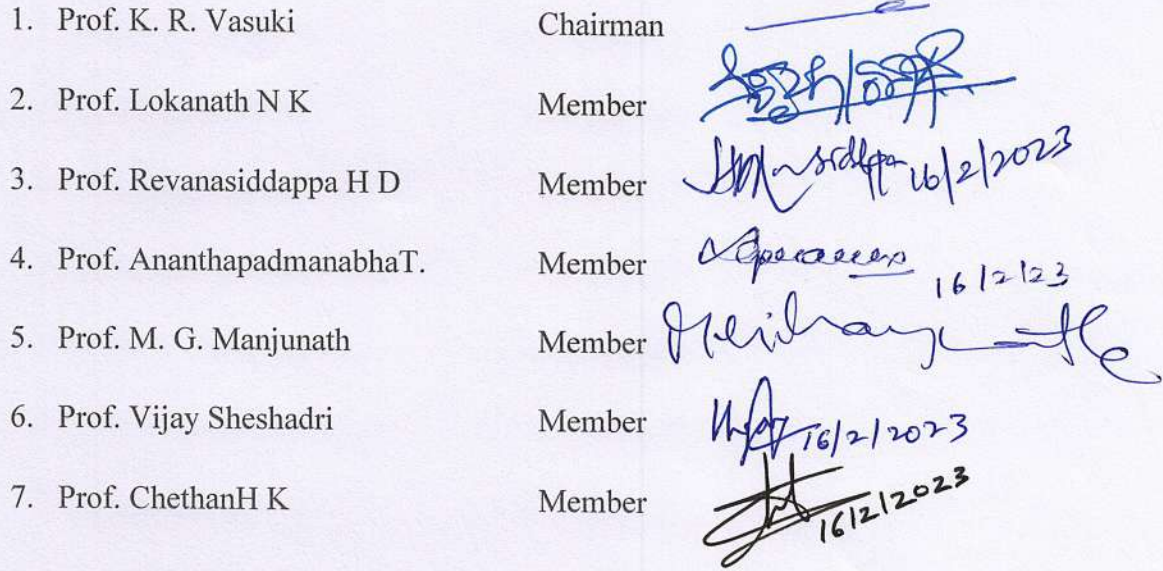 1. Prof. K. R. Vasuki Chairman
2. Prof. Lokanath N K Member
3. Prof. Revanasiddappa H D Member 16/2/2023
4. Prof. AnanthapadmanabhaT. Member 16/2/23
5. Prof. M. G. Manjunath Member
6. Prof. Vijay Sheshadri Member 16/2/2023
7. Prof. ChethanH K Member 16/2/2023